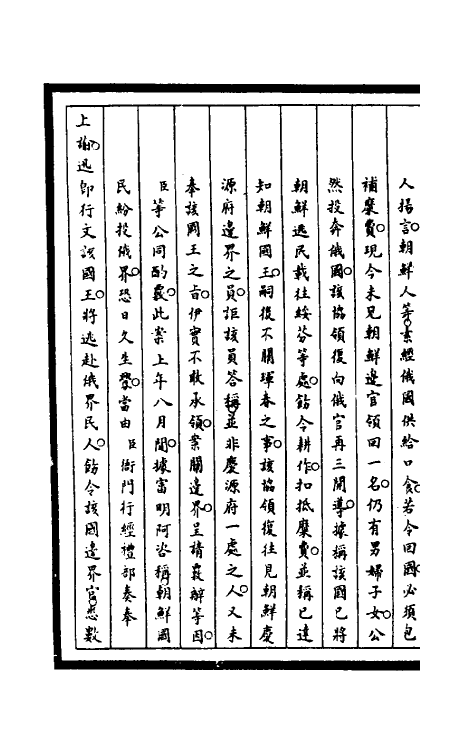 人揚言。朝鮮人等。業經俄國供給口食。若令回國。必須包
補糜費。現今未見朝鮮邊官領回一名。仍有男婦子女。公
然投奔俄國。該協領復向俄官再三開導。據稱該國已將
朝鮮逃民載往綏芬等處。飭令耕作。扣抵糜費。並稱已達
知朝鮮國王。嗣復不關琿春之事。該協領復往見朝鮮慶
源府邊界之員。詎該員答稱。並非慶源府一處之人。又未
奉該國王之旨。伊實不敢承領。案關邊界。呈請覈辦等因。
臣等公同酌覈。此案上年八月間。據富明阿咨稱。朝鮮國
民紛投俄界。恐日久生釁。當由臣衙門行經禮部奏奉
上諭。迅即行文該國王。將逃赴俄界民人。飭令該國邊界官。悉數